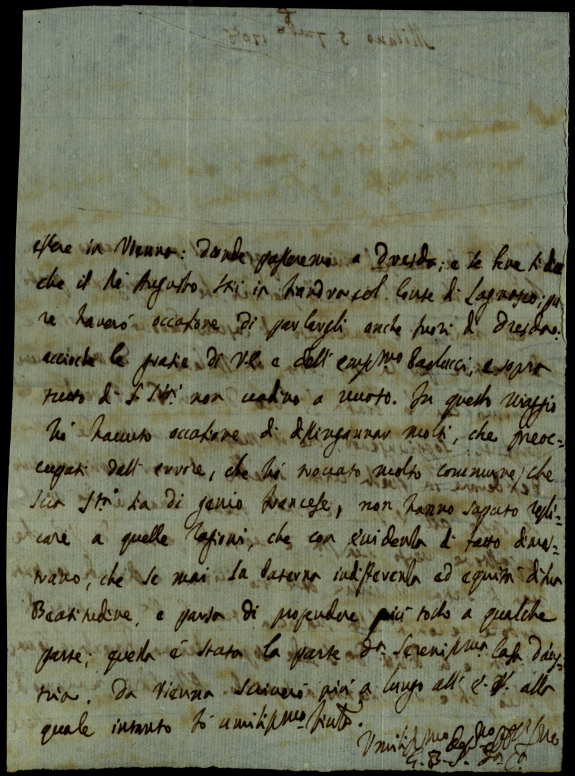 Milano 5
essere in Vienna: donde passeremo a Dresda; e se bene si dica
che il Re Augusto stii in col Conte di Lagnasco; pu
re haverò occasione di parlargli anche fuori di Dresda
acciochè le grazie di V.E. e dell' emin.mo Paolucci, e sopra
tutto di non vadino a vuoto. In questo viaggio
hò havuto occasione di disingannar molti, che preoc=
cupati dall' errore, che hò trovato molto commune, che
sua St.à sia di genio francese, non hanno saputo repli=
care a quelle ragioni, che con evidenza di fatto dimos=
trano, che se mai la paterna indifferenza ed equità di sua
Beatitudine, è parsa di propendere più tosto a qualche
parte; questa è stata la parte Serenis.ma Casa d'Aus=
tria. Da Vienna scriverò più a lungo all' E.V. alla
quale intanto fò umilis.mo
Umilis.mo